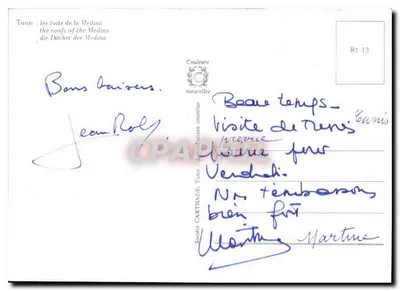 Tunis : les toits de la Medina
the roofs of the Medina
die Dächer der Medina
Couleurs
naturelles
Rt 13
Bons baisers.
Jean Rol
Beau temps_
Visite de Tunis
Tunis
prevue
prévue pour
Vendredi_
Ns t'embrassons
bien fort
Martine
Martine
Société CARTHAGE, Tunis
CPAPHIL